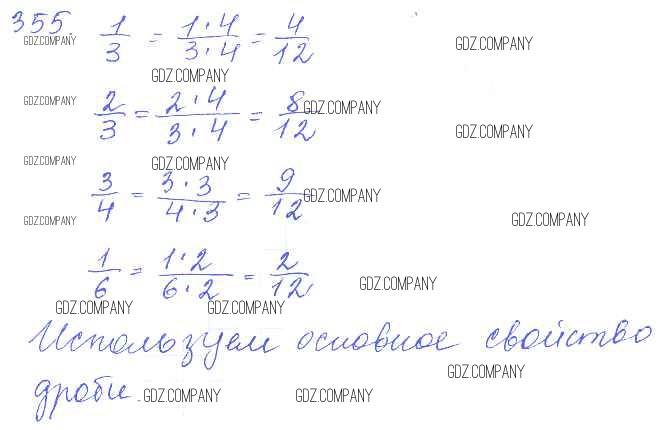 355. 1/3 = 1·4/3·4 = 4/12
GDZ.COMPANY GDZ.COMPANY
GDZ.COMPANY
2/3 = 2·4/3·4 = 8/12
GDZ.COMPANY GDZ.COMPANY
GDZ.COMPANY
GDZ.COMPANY GDZ.COMPANY
3/4 = 3·3/4·3 = 9/12
GDZ.COMPANY
GDZ.COMPANY GDZ.COMPANY
1/6 = 1·2/6·2 = 2/12
GDZ.COMPANY
GDZ.COMPANY GDZ.COMPANY
Используем основное свойство
GDZ.COMPANY
дроби. GDZ.COMPANY GDZ.COMPANY